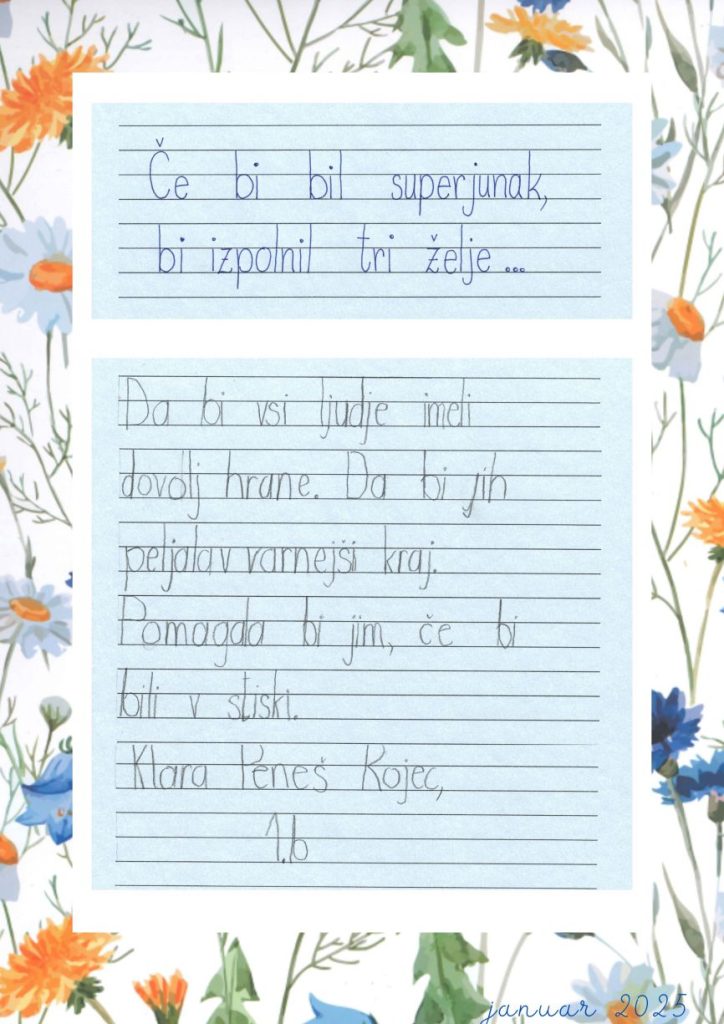 Če bi bil superjunak,
bi izpolnil tri želje...
Da bi vsi ljudje imeli
dovolj hrane. Da bi jih
peljala v varnejši kraj.
Pomagala bi jim, če bi
bili v stiski.
Klara Peneš Rojec,
1.b
januar 2025